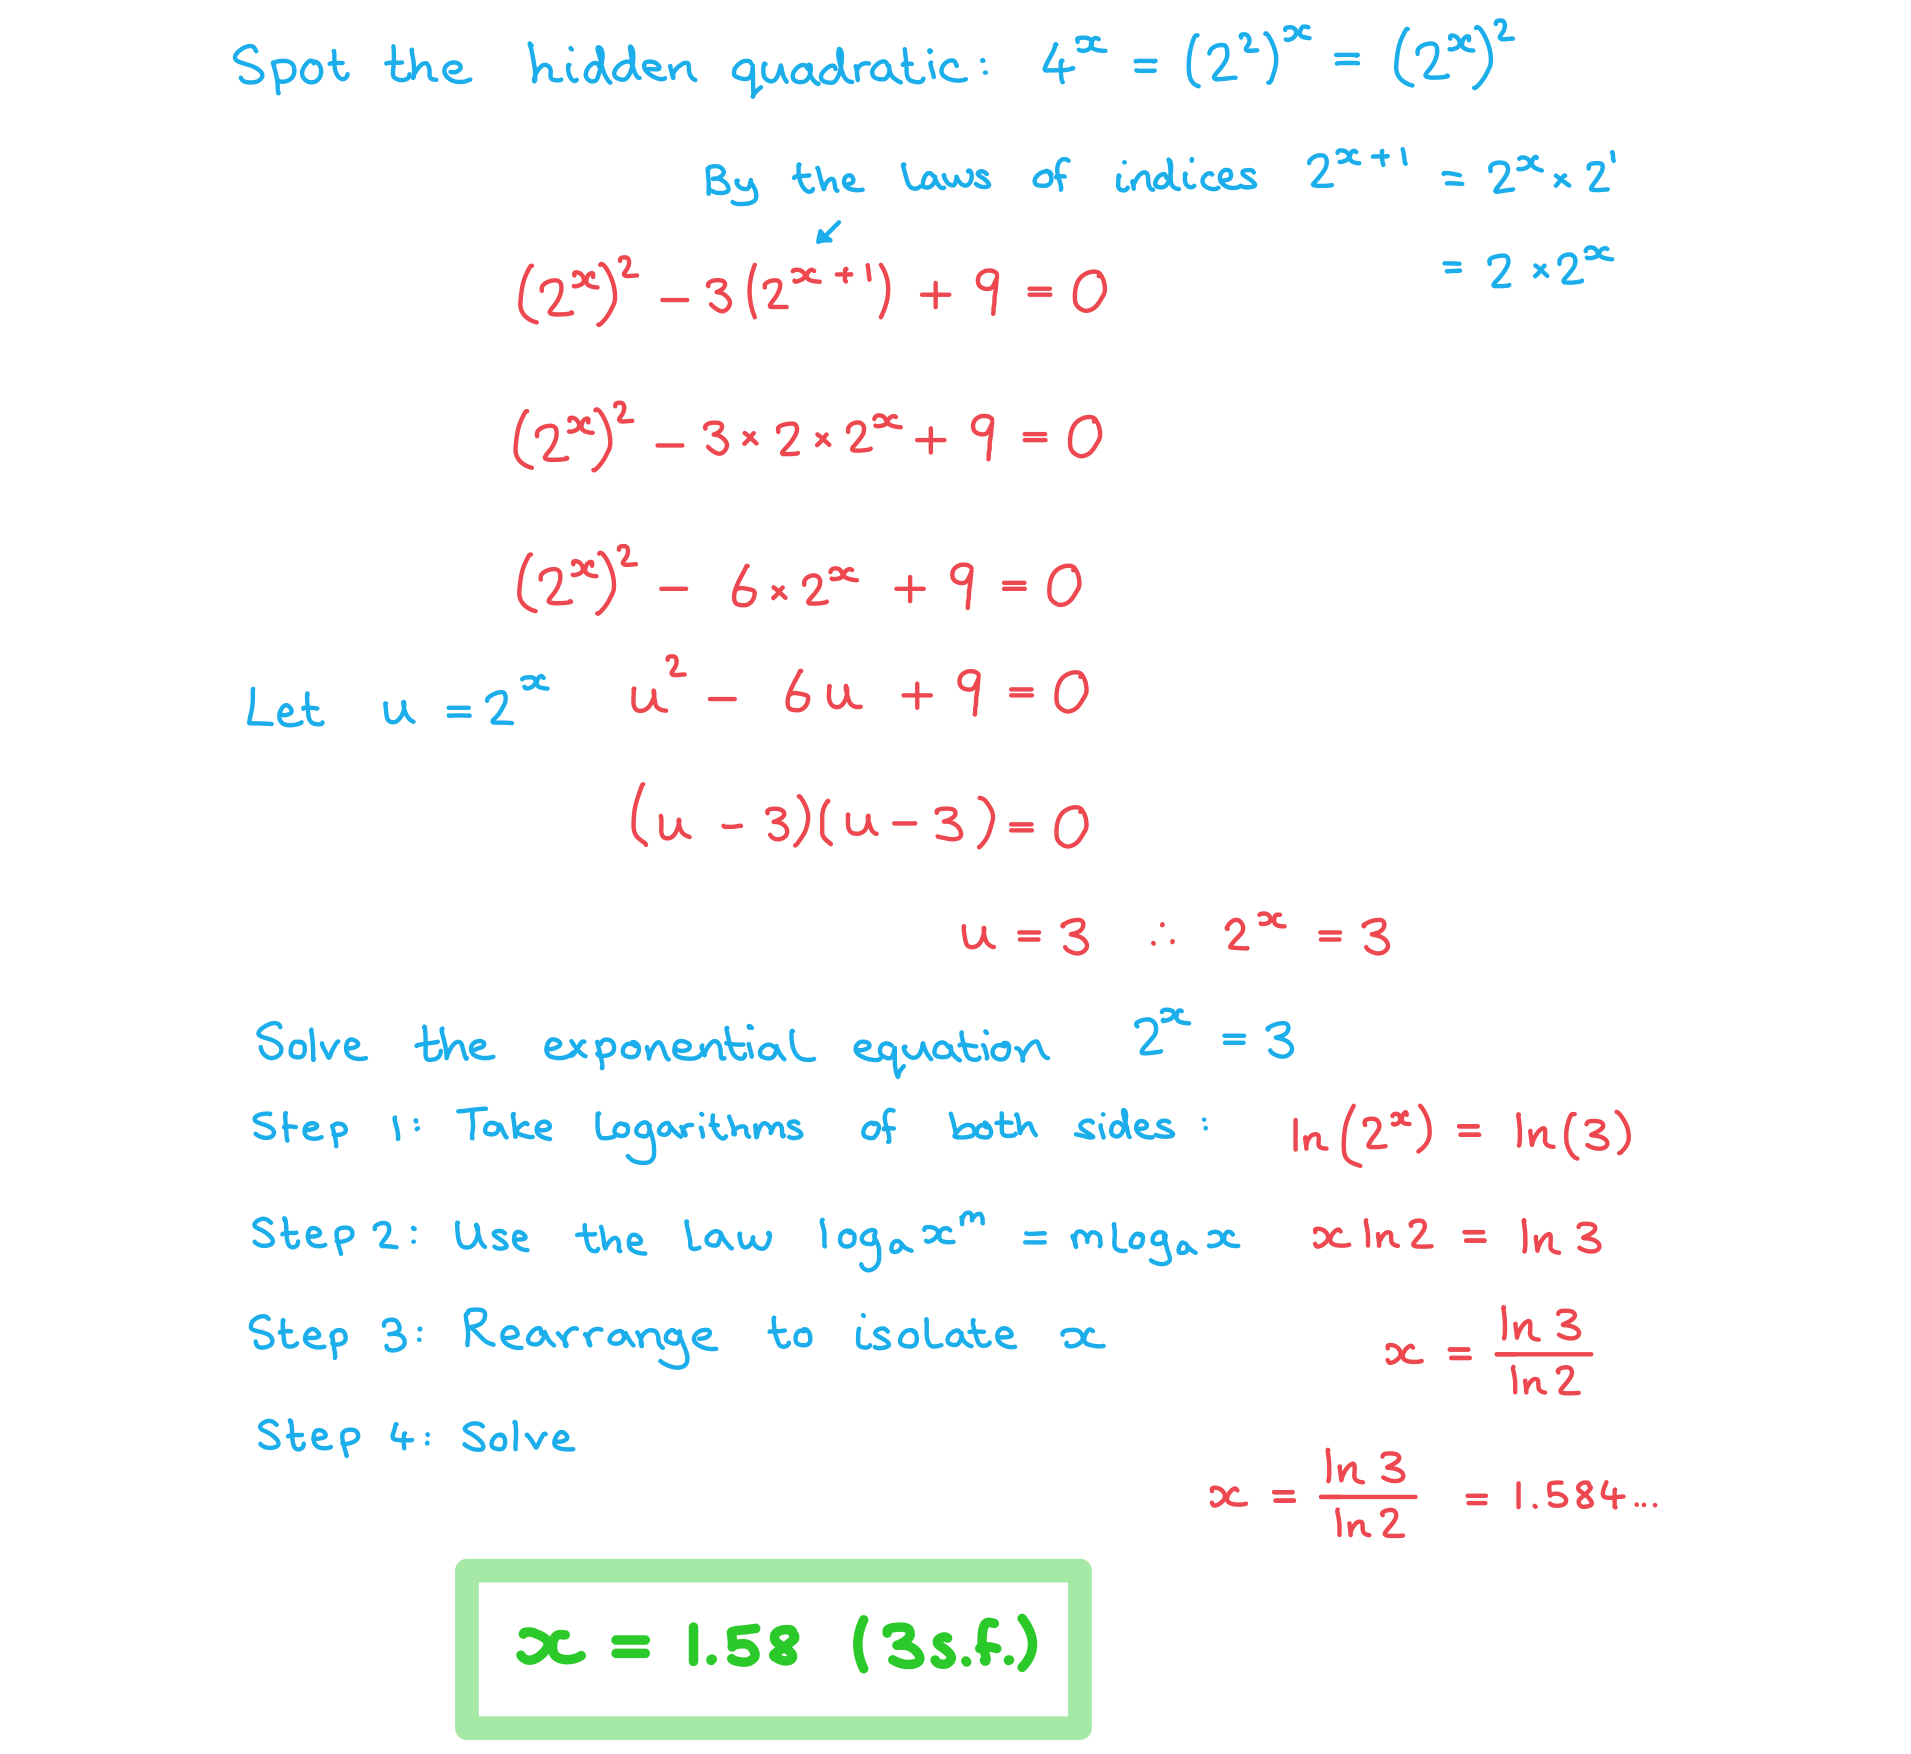 Spot the hidden quadratic: 4^x = (2^2)^x = (2^x)^2
By the laws of indices 2^(x+1) = 2^x × 2^1
= 2 × 2^x
(2^x)^2 − 3(2^(x+1)) + 9 = 0
(2^x)^2 − 3 × 2 × 2^x + 9 = 0
(2^x)^2 − 6 × 2^x + 9 = 0
Let u = 2^x u^2 − 6u + 9 = 0
(u − 3)(u − 3) = 0
u = 3 ∴ 2^x = 3
Solve the exponential equation 2^x = 3
Step 1: Take logarithms of both sides: ln(2^x) = ln(3)
Step 2: Use the law log_a x^m = m log_a x x ln 2 = ln 3
Step 3: Rearrange to isolate x x = ln 3 / ln 2
Step 4: Solve
x = ln 3 / ln 2 = 1.584...
x = 1.58 (3 s.f.)